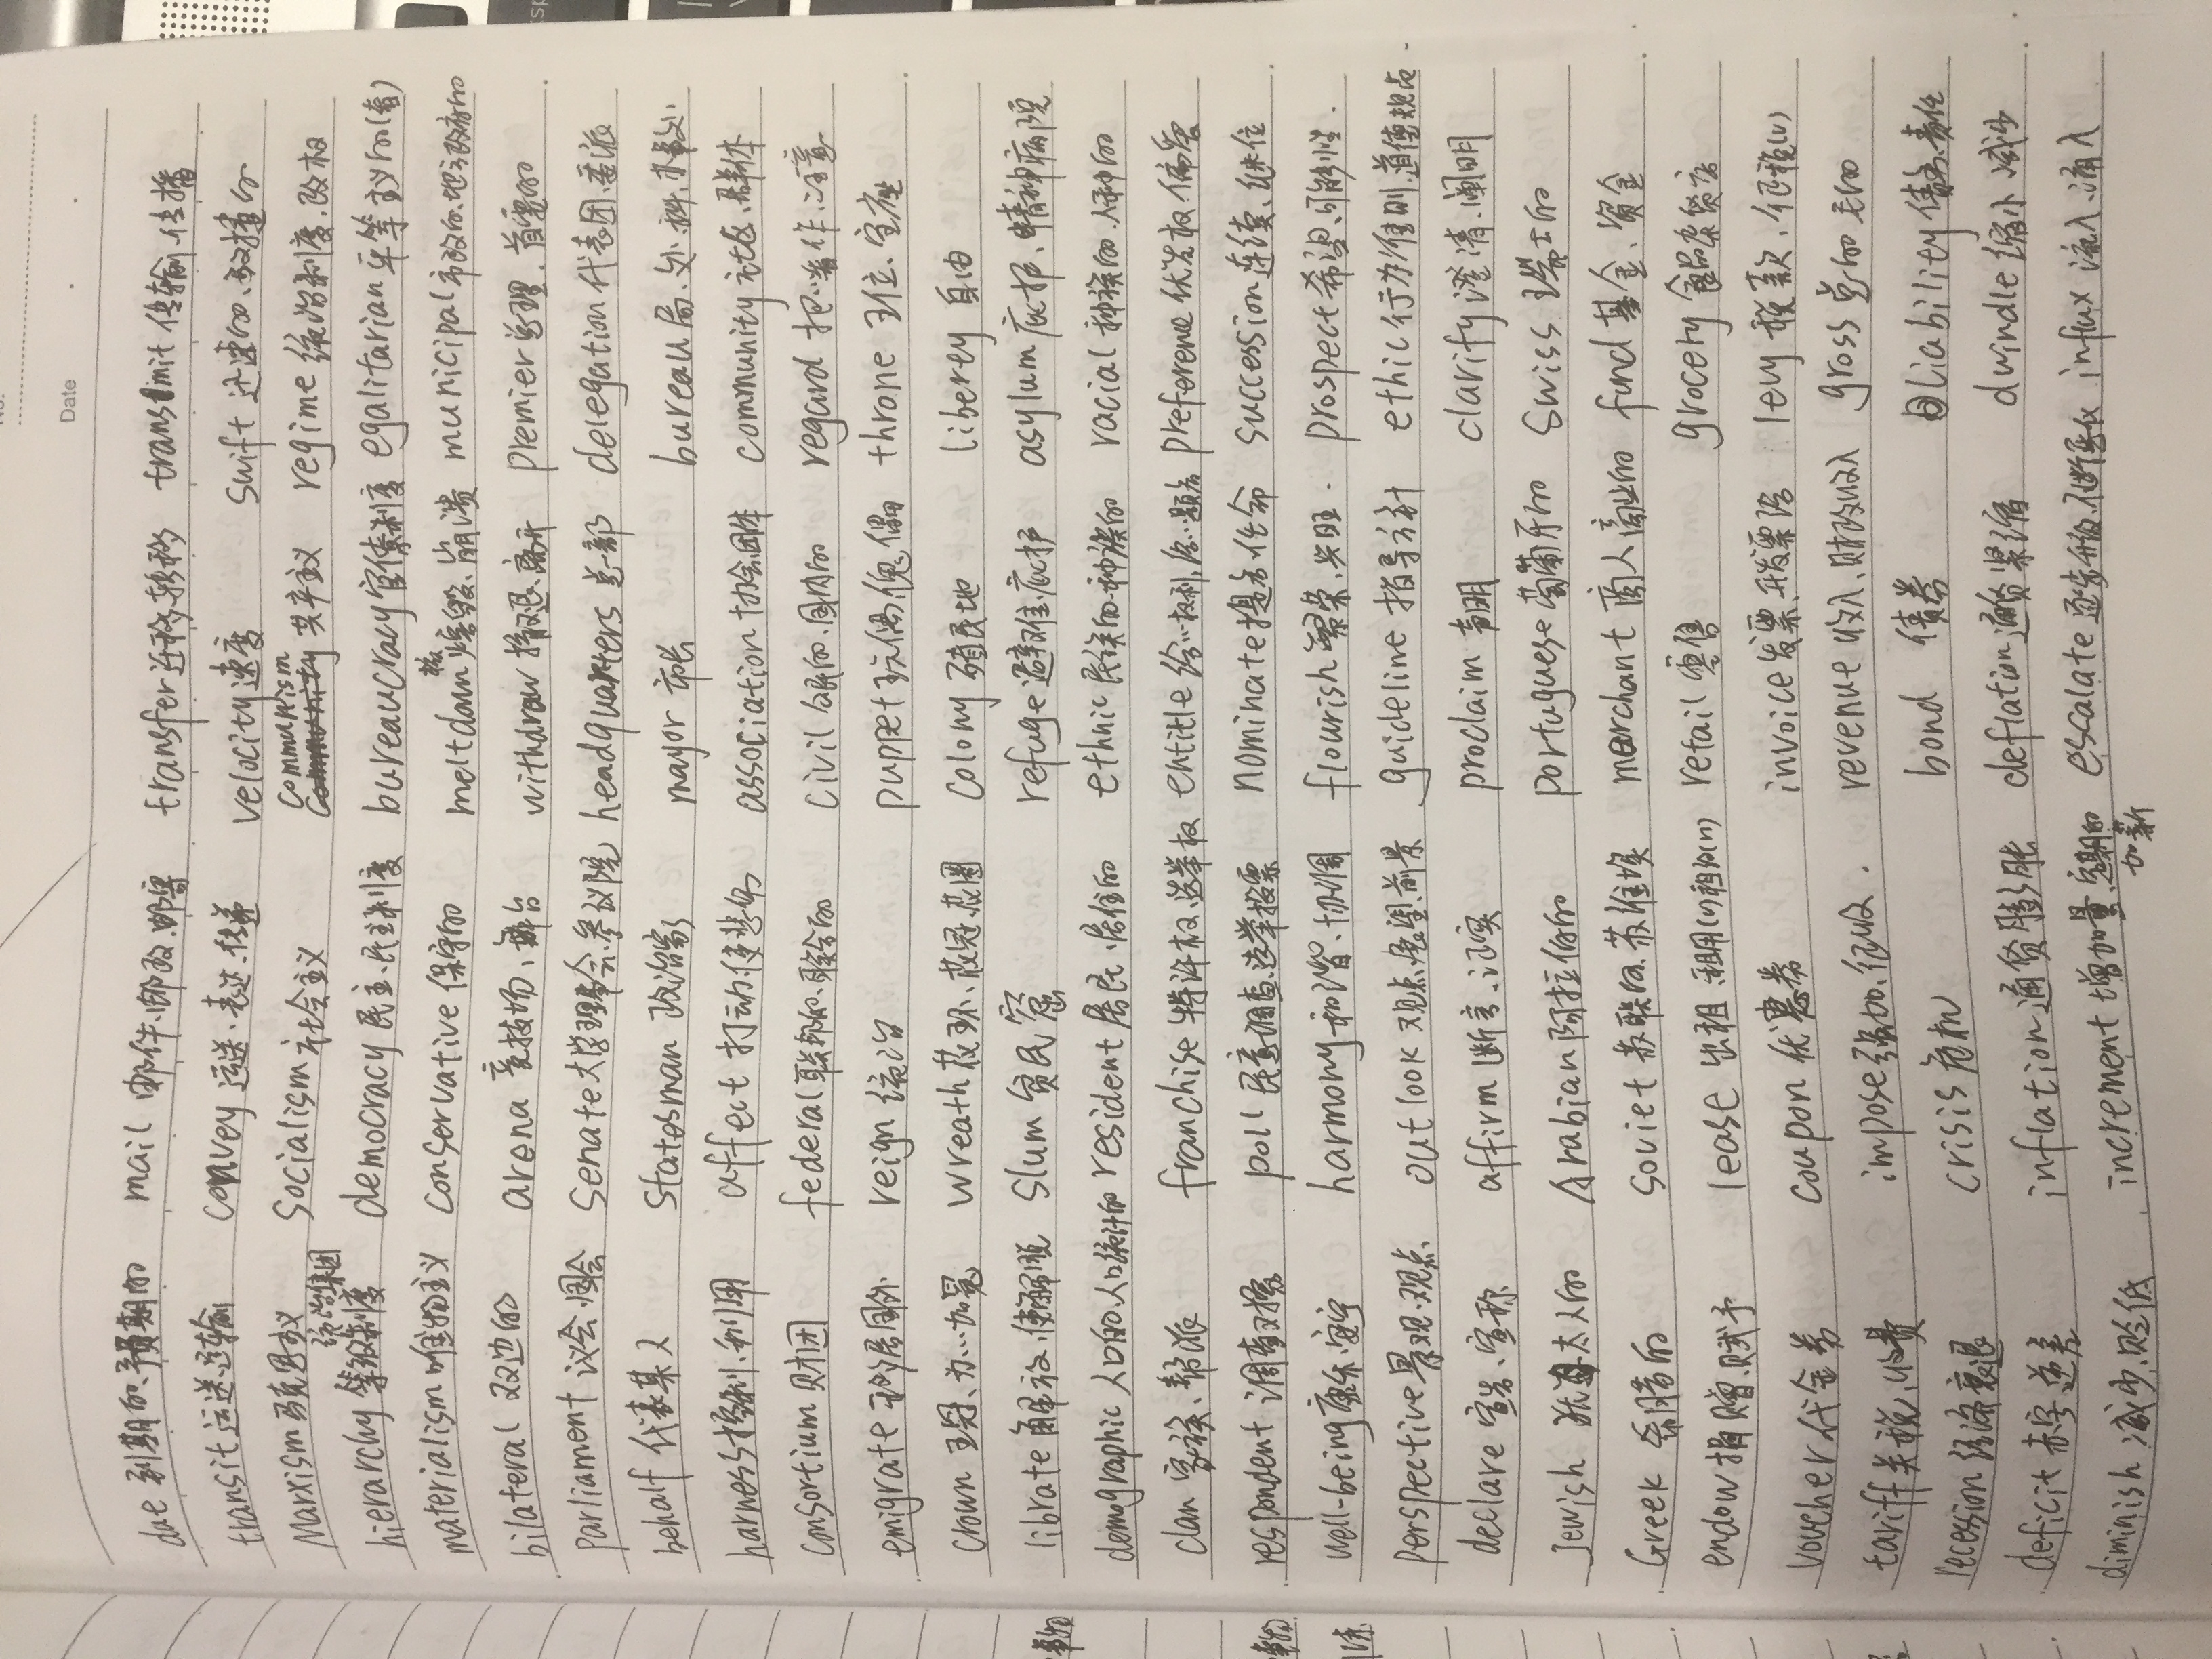 No.
Date
due 到期的、预期的 mail 邮件、邮政、邮寄 transfer 迁移、转移 transmit 传输、传播
transit 运送、运输 convey 运送、表达、传递 velocity 速度 swift 迅速的、敏捷的
Marxism 马克思主义 socialism 社会主义 communism 共产主义 regime 统治制度、政权
hierarchy 等级制度 统治集团 democracy 民主、民主制度 bureaucracy 官僚制度 egalitarian 平等主义的(者)
materialism 唯物主义 conservative 保守的 meltdown 核熔毁、崩溃 municipal 市政的、地方政府的
bilateral 双边的 arena 竞技场、舞台 withdraw 撤退、离开 premier 总理、首要的
parliament 议会、国会 senate 大学理事会、参议院 headquarters 总部 delegation 代表团、委派
behalf 代表某人 statesman 政治家 mayor 市长 bureau 局、处、科、办事处
harness 控制、利用 affect 打动、使悲伤 association 协会、团体 community 社区、群体
consortium 财团 federal 联邦的、联合的 civil 公民的、国内的 regard 把…看作、注意
emigrate 移居国外 reign 统治 puppet 玩偶、傀儡 throne 王位、宝座
crown 王冠、为…加冕 wreath 花环、花冠、花圈 colony 殖民地 liberty 自由
librate 解放、使解脱 slum 贫民窟 refuge 避难、庇护 asylum 庇护、精神病院
demographic 人口的、人口统计的 resident 居民、居住的 ethnic 民族的、种族的 racial 种族的、人种的
clan 家族、帮派 franchise 特许权、选举权 entitle 给…权利、给…题名 preference 优先权、偏爱
respondent 调查对象 poll 民意调查、选举投票 nominate 提名、任命 succession 连续、继位
well-being 康乐、安宁 harmony 和谐、协调 flourish 繁荣、兴旺 prospect 希望、可能性
perspective 景观、观点 outlook 观点、展望、前景 guideline 指导方针 ethic 行为准则、道德规范
declare 宣告、宣称 affirm 断言、证实 proclaim 声明 clarify 澄清、阐明
Jewish 犹太人的 Arabian 阿拉伯的 portuguese 葡萄牙的 Swiss 瑞士的
Greek 希腊的 soviet 苏联的、苏维埃 merchant 商人、商业的 fund 基金、资金
endow 捐赠、赋予 lease 出租、租用(v) 租约(n) retail 零售 grocery 食品杂货店
voucher 代金券 coupon 优惠券 invoice 发票、开发票给 levy 税款、征税(v)
tariff 关税、收费 impose 强加、征收 revenue 收入、财政收入 gross 总的、毛的
recession 经济衰退 crisis 危机 bond 债券 liability 债务、责任
deficit 赤字、逆差 inflation 通货膨胀 deflation 通货紧缩 dwindle 缩小、减少
diminish 减少、贬低 increment 增加量、定期的加薪 escalate 逐步升级、不断恶化 influx 流入、涌入